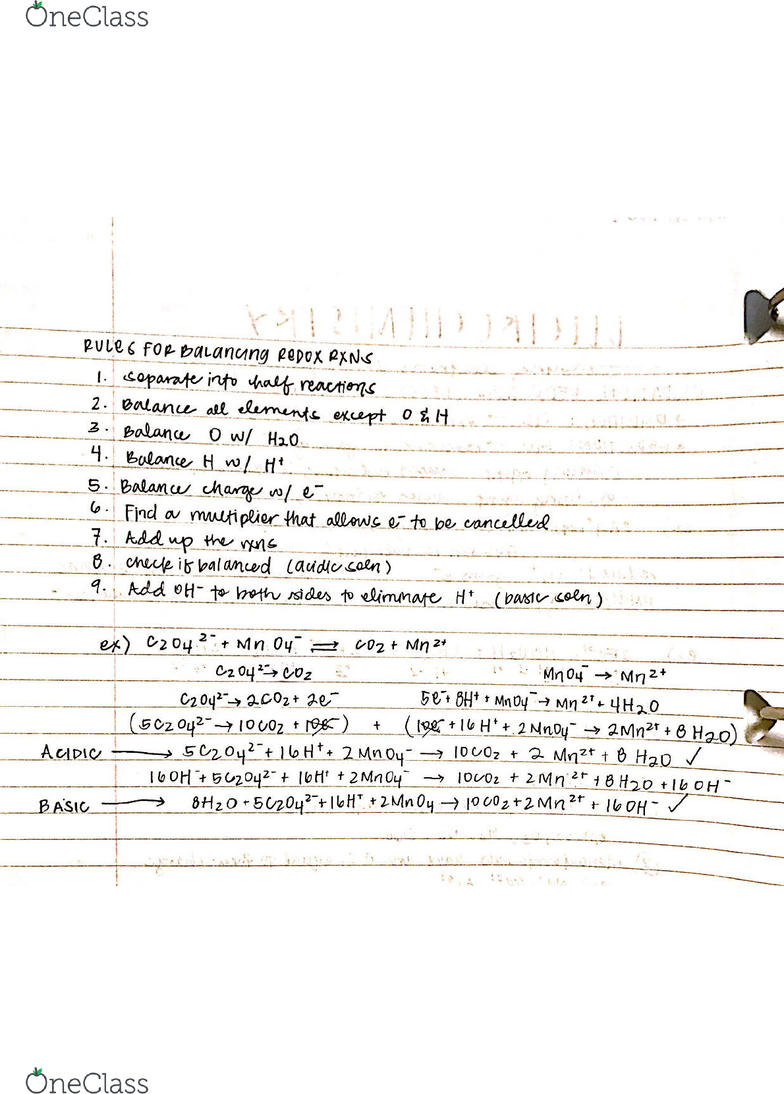 OneClass
RULES FOR BALANCING REDOX RXNS
1. Separate into half reactions
2. Balance all elements except O & H
3. Balance O w/ H2O
4. Balance H w/ H+
5. Balance charge w/ e-
6. Find a multiplier that allows e- to be cancelled
7. Add up the rxns
8. check if balanced (acidic soln)
9. Add OH- to both sides to eliminate H+ (basic soln)
ex) C2O4 2- + MnO4- ⇌ CO2 + Mn2+
C2O4 2- → CO2 MnO4- → Mn2+
C2O4 2- → 2CO2 + 2e- 5e- + 8H+ + MnO4- → Mn2+ + 4H2O
(5C2O4 2- → 10CO2 + 10e-) + (10e- + 16H+ + 2MnO4- → 2Mn2+ + 8H2O)
ACIDIC → 5C2O4 2- + 16H+ + 2MnO4- → 10CO2 + 2Mn2+ + 8H2O ✓
16OH- + 5C2O4 2- + 16H+ + 2MnO4- → 10CO2 + 2Mn2+ + 8H2O + 16OH-
BASIC → 8H2O + 5C2O4 2- + 16H+ + 2MnO4 → 10CO2 + 2Mn2+ + 16OH- ✓
OneClass